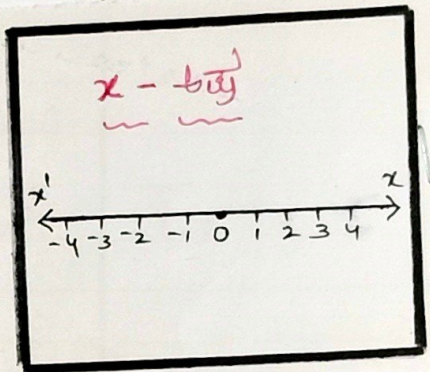 x -
x' x
-4 -3 -2 -1 0 1 2 3 4